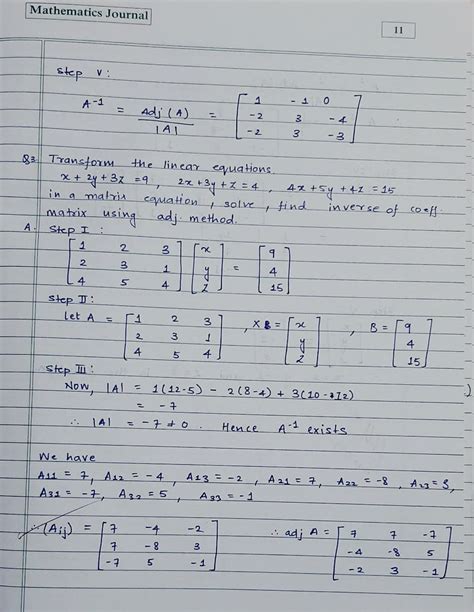 Mathematics Journal
11
Step V:
A⁻¹ = Adj (A) / |A| = [ 1 -1 0
-2 3 -4
-2 3 -3 ]
Q3. Transform the linear equations.
x + 2y + 3z = 9, 2x + 3y + z = 4, 4x + 5y + 4z = 15
in a matrix equation, solve, find inverse of coeff
matrix using adj method.
A. Step I:
[ 1 2 3
2 3 1
4 5 4 ] [ x
y
z ] = [ 9
4
15 ]
Step II:
let A = [ 1 2 3
2 3 1
4 5 4 ], X = [ x
y
z ], B = [ 9
4
15 ]
Step III:
Now, |A| = 1(12-5) - 2(8-4) + 3(10-12)
= -7
∴ |A| = -7 ≠ 0. Hence A⁻¹ exists
We have
A11 = 7, A12 = -4, A13 = -2, A21 = 7, A22 = -8, A23 = 3,
A31 = -7, A32 = 5, A33 = -1
∴ (Aij) = [ 7 -4 -2
7 -8 3
-7 5 -1 ]
∴ adj A = [ 7 7 -7
-4 -8 5
-2 3 -1 ]